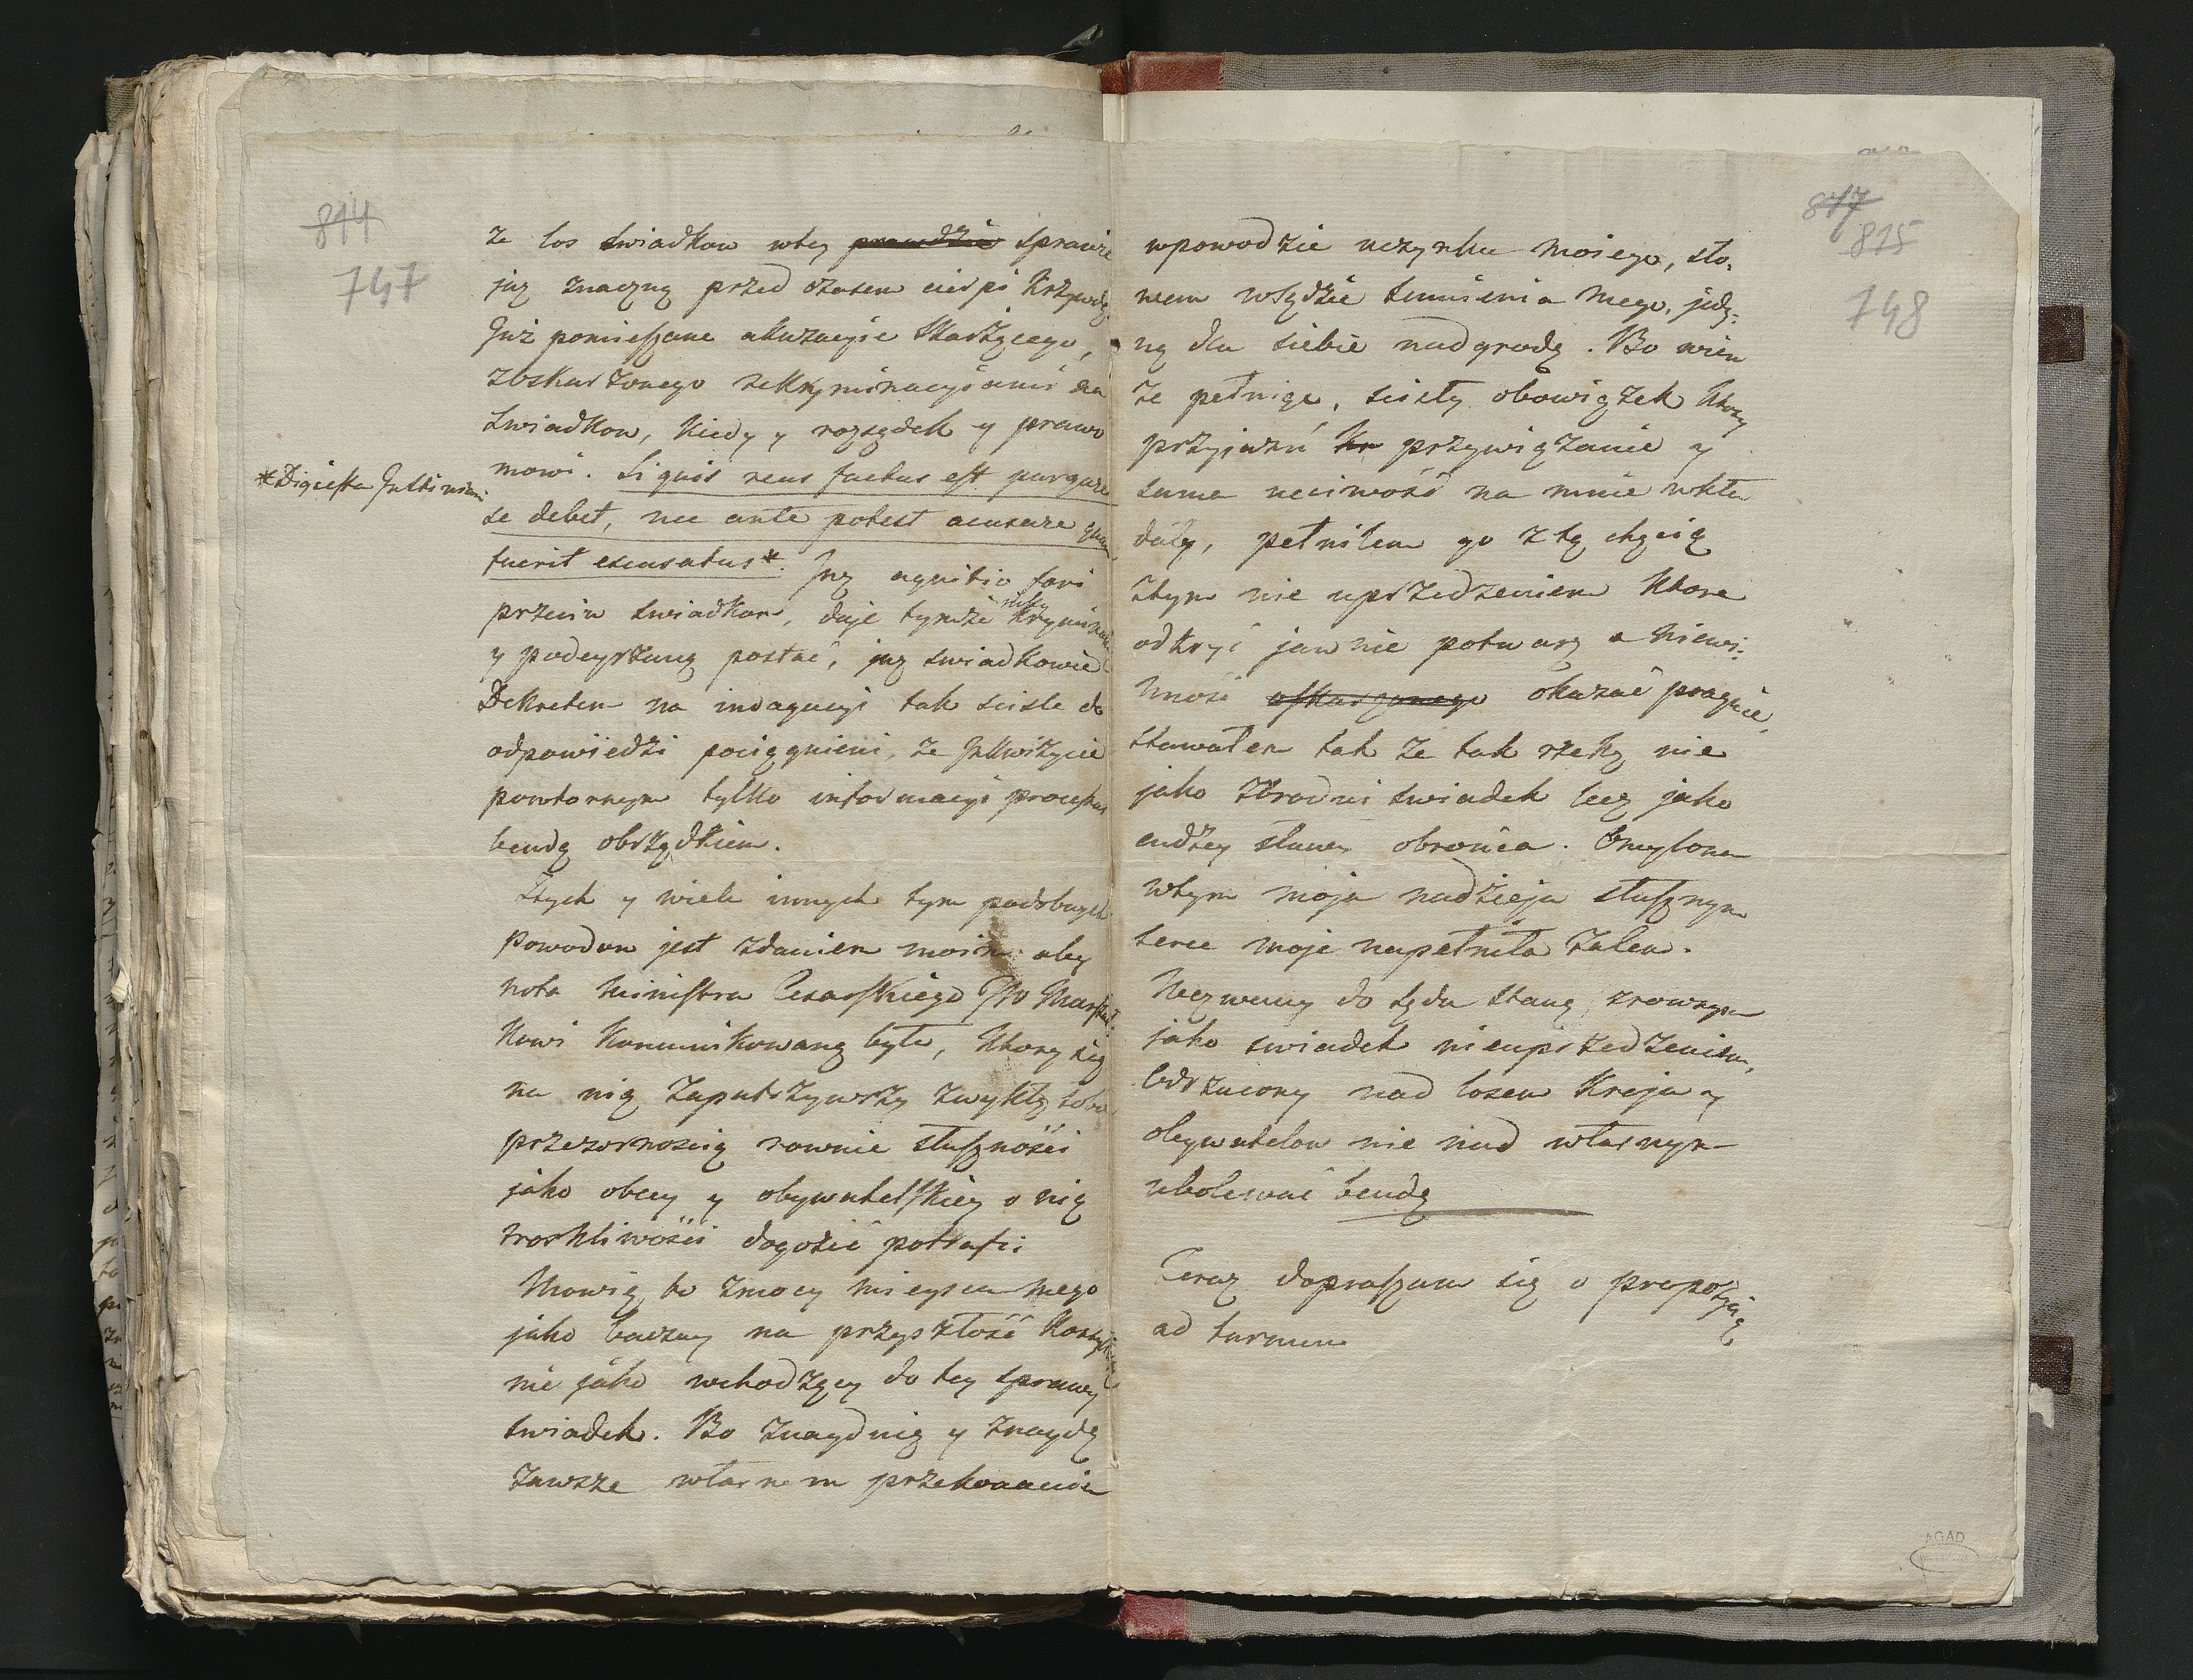 814
747
że los swiadkow wtey prawdziw sprawie
juz znaczną przed czasem cierpi krzywdę
Już pomieszane akuzacyie skarżącego,
zoskarżonego rekryminacyiami na
swiadkow, kiedy y rozsądek y prawo
mowi. Siquis reus factus est purgare
se debet, nec ante potest acusare quam
fuerit excusatus*. Juz agnitio fori
*Digiesta Justiniani
przeciw swiadkom, daje tymże
y podeyrzaną postać, juz swiadkowie
Dekretem na indagacyi tak scisle do
odpowiedzi pociągnieni, że Inkwizycie
powtornym tylko informacyi processu
bendą obrządkiem.
Ztych y wiele innych tym podobnych
powodow jest zdaniem moim aby
nota ministra Cesarskiego JPo Marszał
kowi komunikowaną była, ktory się
na nią zapatrzywszy zwykłą sobie
przezornoscią rownie słuszności
jako obcey y obywatelskiey o nią
troskliwości dogodzić potrafi
Mowię to zmocy mieysca mego
jako baczny na przyszłość
nie jako wchodzący do tey sprawy
swiadek. Bo znaydnię y znaydę
zawsze własnem przekonaniu
817
815
748
wpowodzie uczynku moiego, sło.
wem wsędzie sumienia mego, jedy:
ną dla siebie nadgrodę. Bo wiem
że pełniąc, scisły obowiązek ktory
przyjazń kr przywiązanie y
sama uciwość na mnie wkła
dały, pełniłem go z tą chęcią
ztym nie uprzedzeniem ktore
odkryć jawnie potwarz a niewi:
nność oskarzonego okazać pragnie,
stawałem tak że tak rzekę nie
jako zbrodni swiadek lecz jako
cudzey sławy obrońca. Omylona
wtym moja nadzieja słusznym
serce moje napełniła żalem.
Wezwany do sądu stanę, zrownym
jako swiadek nieuprzedzeniem,
Odrzucony nad losem Kraju y
obywatelow nie nad własnym
ubolewać bendę
Teraz dopraszam się o propozycią
ad turnum
AGAD